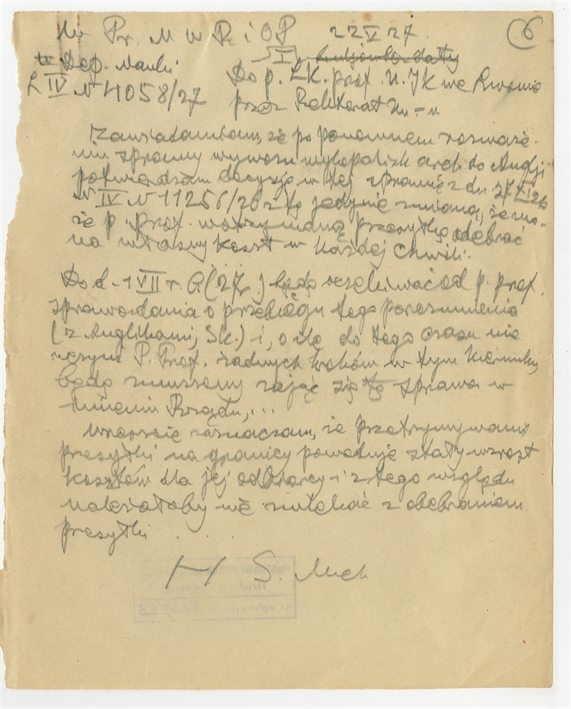 Pr. M W R i O P 22 V 27. 6
Dep. Nauki Do p. prof. U. J K we Lwowie
IV N 4058/27 przez Rektorat
Zawiadamiam, że po ponownem rozważe-
niu sprawy wywozu wykopalisk arch. do Anglji
potwierdzam decyzję w tej sprawie z dn. 27 XI 26
N IV N 11256/26 z tą jedynie zmianą, że mo-
że p. Prof. wstrzymaną przesyłkę odebrać
na własny koszt w każdej chwili.
Do d. 1 VII r. b. (27.) będę oczekiwać od p. prof.
sprawozdania o przebiegu tego porozumienia
(z Anglikami) i, o ile do tego czasu nie
poczyni P. Prof. żadnych kroków w tym kierunku,
będę zmuszony zająć się tą sprawą w
imieniu Rządu,...
Wreszcie zaznaczam, że przetrzymywanie
przesyłki na granicy powoduje stały wzrost
kosztów dla jej odbiorcy i z tego względu
należałoby nie zwlekać z odebraniem
przesyłki . . . .
S. Mich